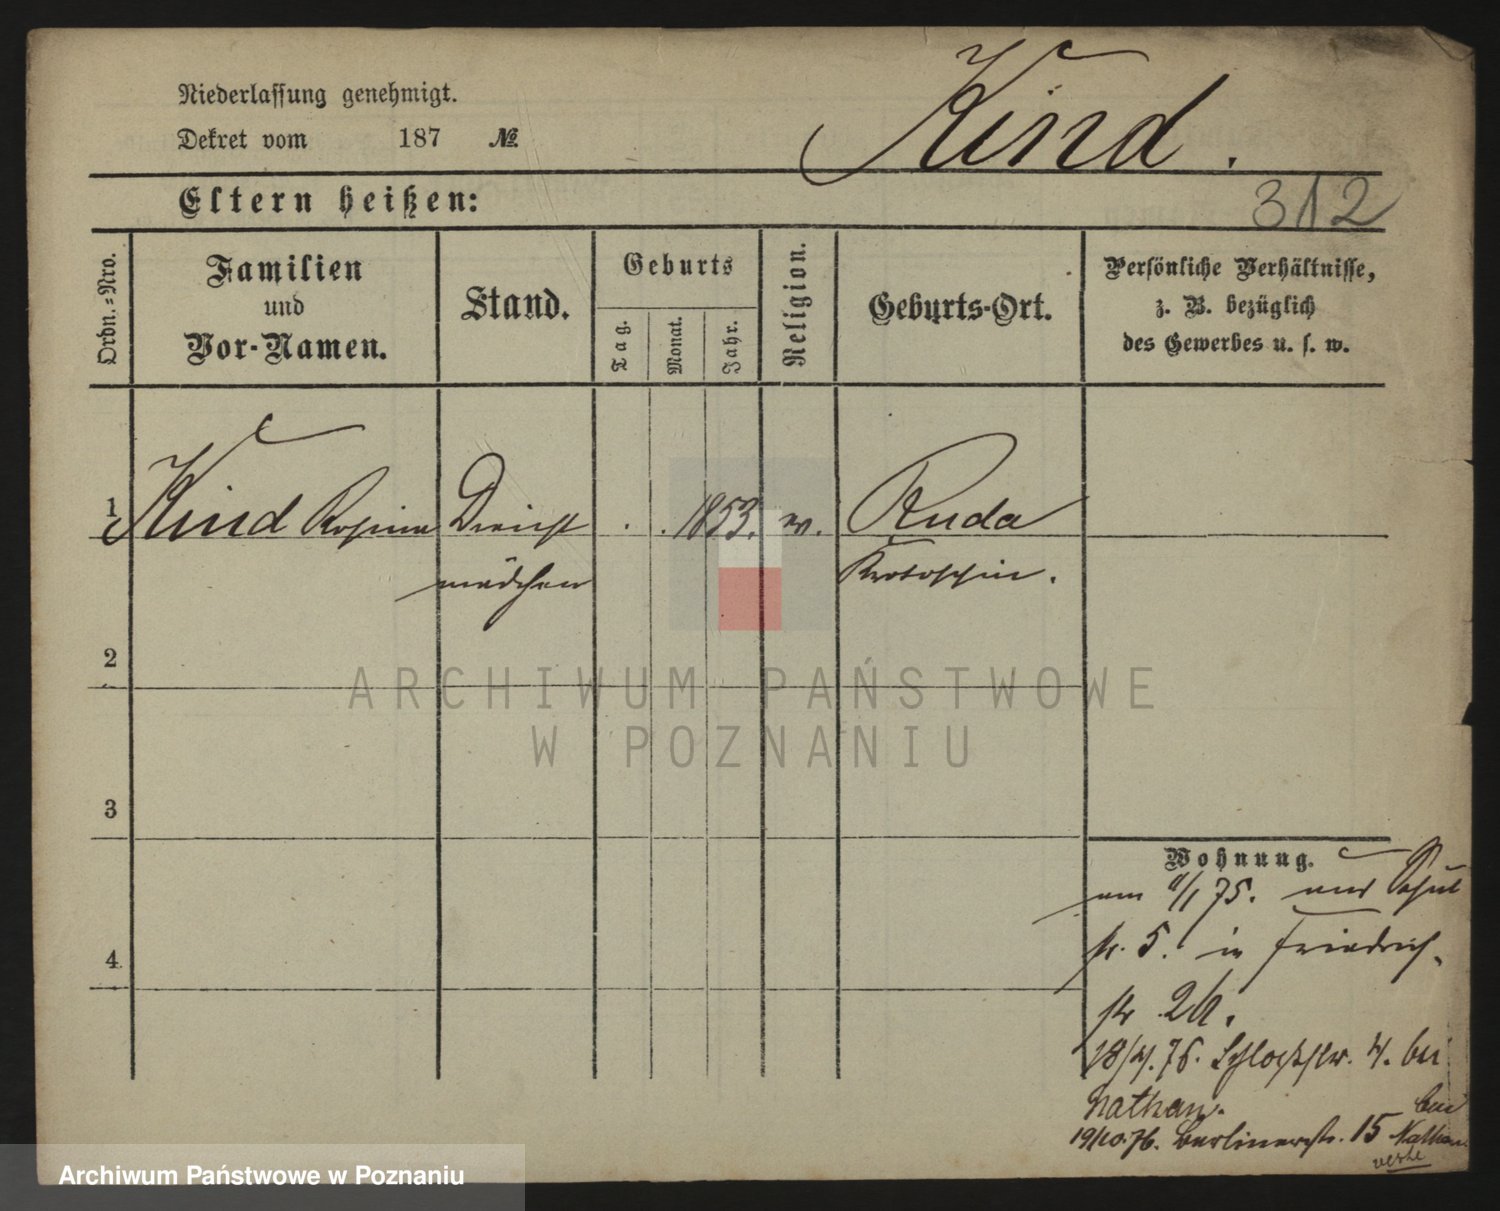 Niederlassung genehmigt.
Dekret vom 187 №
Kind.
Eltern heißen:
312
Ordn.-Nro.
Familien
und
Vor-Namen.
Stand.
Geburts
Tag.
Monat.
Jahr.
Religion.
Geburts-Ort.
Persönliche Verhältnisse,
z. B. bezüglich
des Gewerbes u. s. w.
1 Kind Rosina Dienst . . 1853. Ruda
mädchen Krotoschin.
2
ARCHIWUM PAŃSTWOWE
W POZNANIU
3
Wohnung.
am 75. aus Schul
str. 5. in Friedrich-
4
str
18/4. 76. Schlossstr. 4. bei
Nathan.
bei
19/10.76. Berlinerstr. 15 Nathan
verte
Archiwum Państwowe w Poznaniu